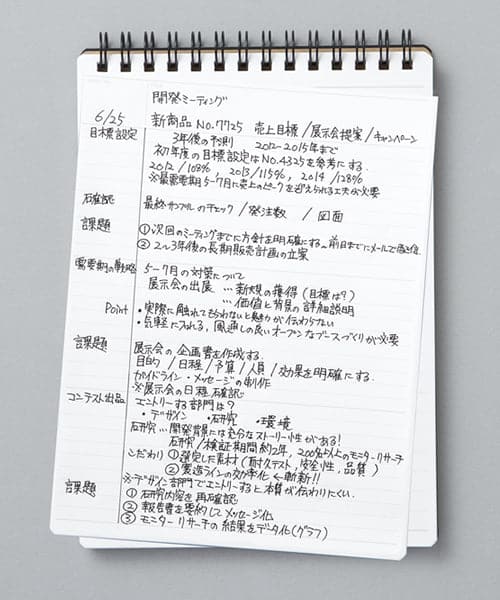 開発ミーティング
6/25 新商品 No.7725 売上目標/展示会提案/キャンペーン
目標設定 3年後の予測 2012-2015年まで
初年度の目標設定はNo.4325を参考にする.
2012/108%, 2013/115%, 2014/128%
※最需要期5-7月に売上のピークを迎えられる工夫が必要
確認 最終サンプルのチェック/発注数 / 図面
課題 ①次回のミーティングまでに方針を明確にする→前日までにメールで
②2〜3年後の長期販売計画の立案
需要期の戦略 5-7月の対策について
展示会の出展 … 新規の獲得(目標は?)
… 価値と背景の詳細説明
Point ・実際に触れてもらわないと魅力が伝わらない
・気軽に入れる, 風通しの良いオープンなブースづくりが必要
課題 展示会の企画書を作成する.
目的/日程/予算/人員/効果を明確にする.
ガイドライン・メッセージの制作
※展示会の日程確認
コンテスト出品 エントリーする部門は?
・デザイン ・研究 ・環境
研究…開発背景には充分なストーリー性がある!
研究/検証期間約2年, 200名以上のモニターリサーチ
こだわり ①選定した素材(耐久テスト, 安全性, 品質)
②製造ラインの効率化 ←斬新!!
※デザイン部門でエントリーすると本質が伝わりにくい.
課題 ①研究内容を再確認
②報告書を要約してメッセージ化
③モニターリサーチの結果をデータ化(グラフ)